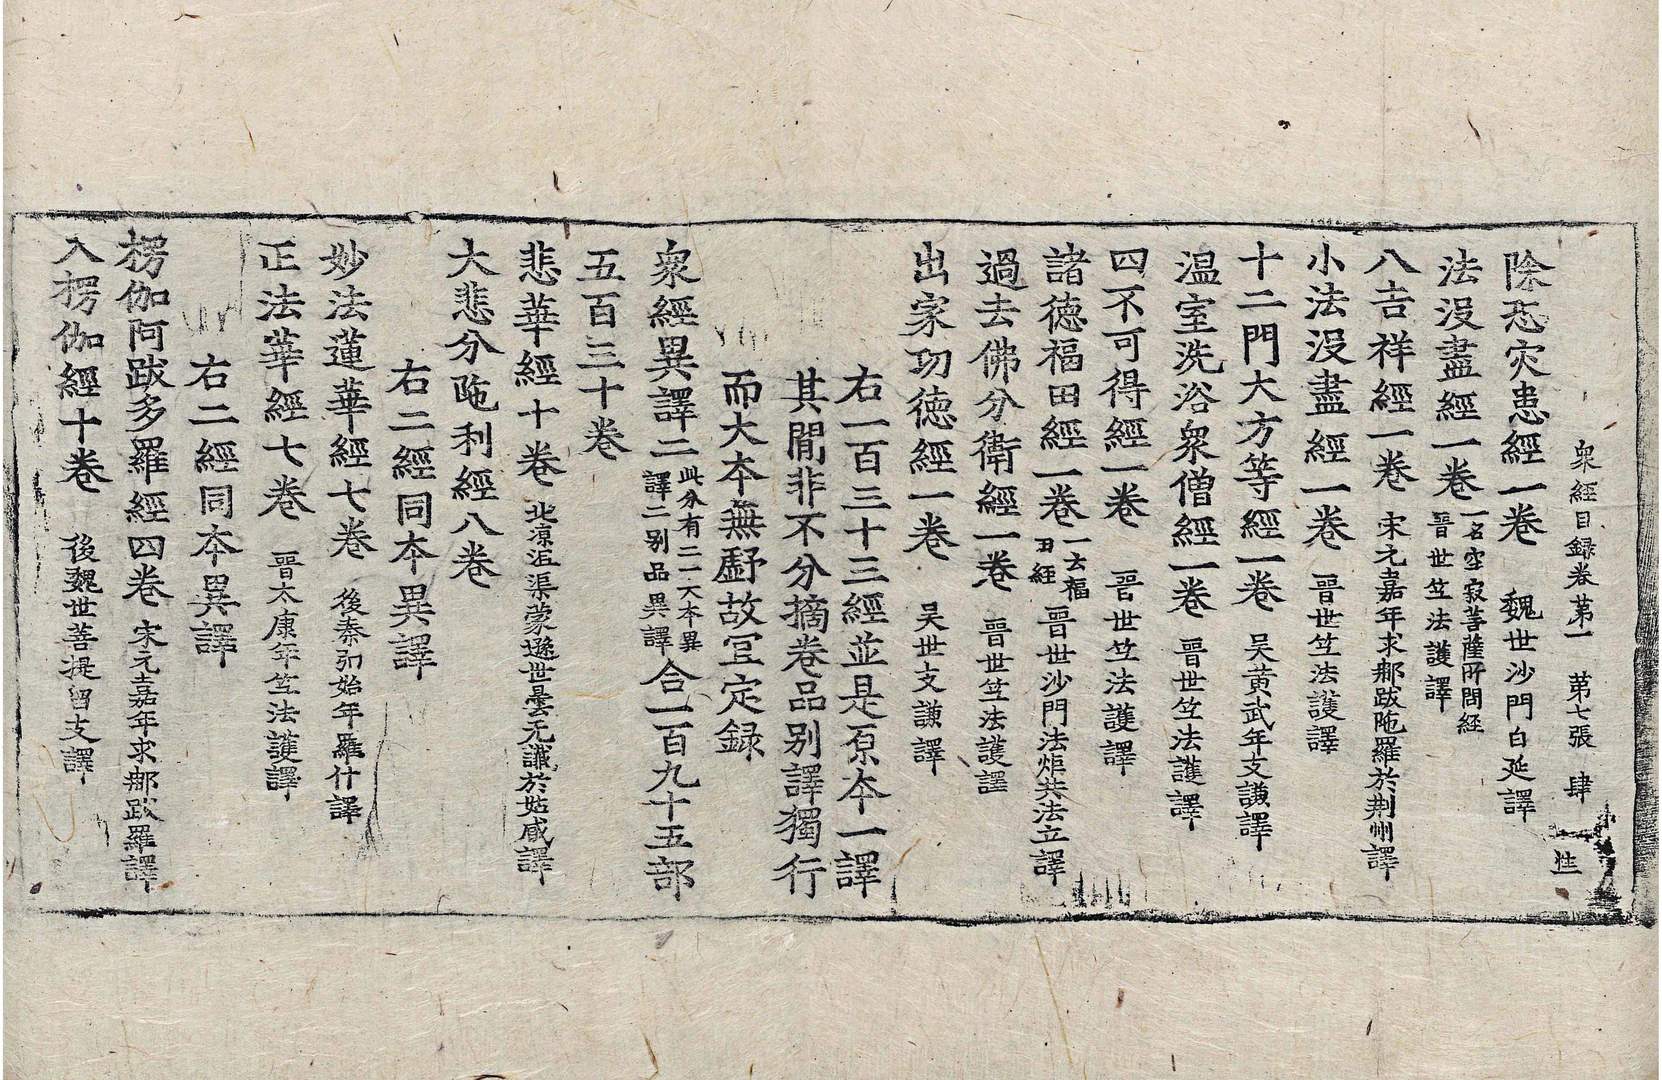 衆經目録卷第一　第七張　肆
性
除恐灾患經一卷　魏世沙門白延譯
法没盡經一卷一名空寂菩薩所問經
晉世竺法護譯
八吉祥經一卷　宋元嘉年求那跋陁羅於荆州譯
小法没盡經一卷　晉世竺法護譯
十二門大方等經一卷　吴黄武年支謙譯
温室洗浴衆僧經一卷　晉世竺法護譯
四不可得經一卷　晉世竺法護譯
諸德福田經一卷一云福田經　晉世沙門法炬共法立譯
過去佛分衛經一卷　晉世竺法護譯
出家功德經一卷　吴世支謙譯
右一百三十三經並是原本一譯
其間非不分摘卷品别譯獨行
而大本無虧故宜定録
衆經異譯二此分有二一大本異譯二别品異譯合一百九十五部
五百三十卷
悲華經十卷　北涼沮渠蒙遜世曇无讖於姑臧譯
大悲分陁利經八卷
右二經同本異譯
妙法蓮華經七卷　後秦弘始年羅什譯
正法華經七卷　晉太康年竺法護譯
右二經同本異譯
楞伽阿跋多羅經四卷　宋元嘉年求那跋羅譯
入楞伽經十卷　後魏世菩提留支譯